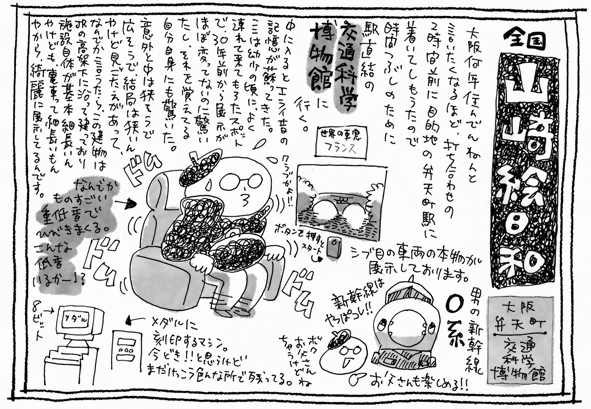 全国
山崎絵日和
大阪
弁天町
交通
科学
博物館
大阪何年住んでんねんと
言いたくなるほど、打ち合わせの
2時間前に目的地の弁天町駅に
着いてしもうたので
時間つぶしのために
駅直結の
交通科学
博物館に
行く。
中に入るとエライ昔の
記憶が蘇ってきた。
ここは幼少の頃によく
連れて来てもろたスポット
で30年前から展示が
ほぼ変ってないのに驚い
たし、それを覚えてる
自分自身にも驚いた。
意外と中は狭そうで
広そうで結局は狭いん
やけど見ごたえがあって、
なんでか言うたら、この建物は
JRの高架下に沿って建っており
施設自体が基本細長いん
やけども、電車って細長いもん
やから、綺麗に展示してるんです。
世界の車窓
フランス
ボタンを押すと
スタート
ワラかよ!!
ドム
ドム
ドム
ドム
なんでか
ものすごい
重低音で
ひびきまくる。
こんな
低音
いるかー!!
シブ目の車両の本物が
展示しております。
男の新幹線
0系
新幹線は
やっぱコレ!!
ボク
お父さん
ちゃうけどね
お父さんも楽しめる!!
8ビット
メダル
メダルに
刻印するマシン。
今どき!!と思うけど
まだけっこう色んな所で残ってる。